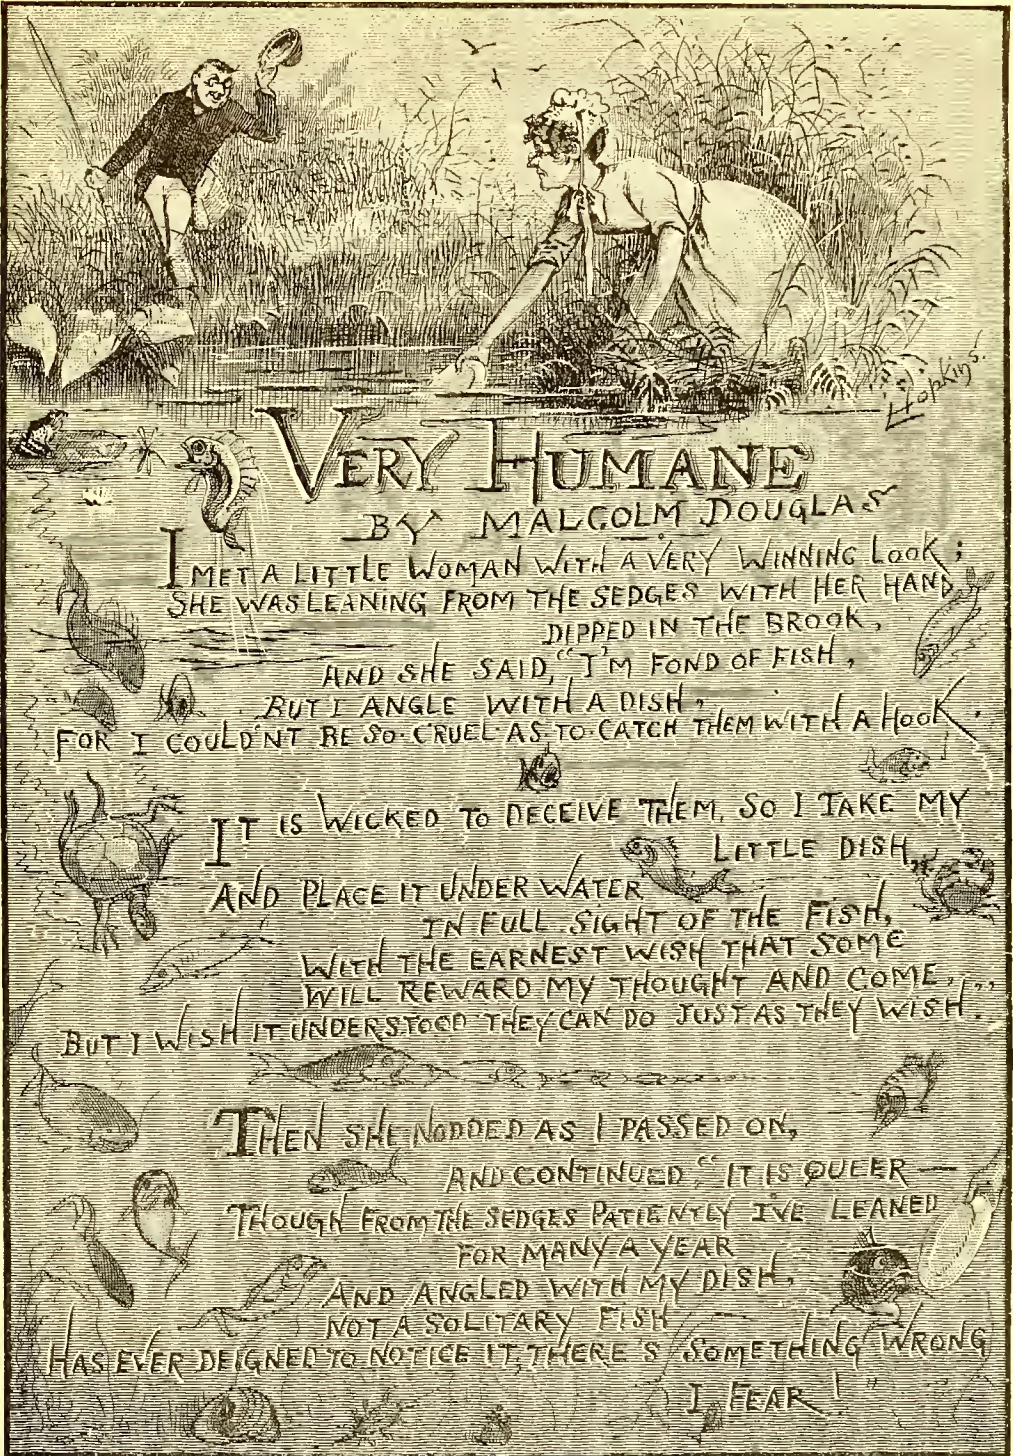 Hopkins!
VERY HUMANE
BY MALCOLM DOUGLAS
I MET A LITTLE WOMAN WITH A VERY WINNING LOOK;
SHE WAS LEANING FROM THE SEDGES WITH HER HAND
DIPPED IN THE BROOK,
AND SHE SAID, "I'M FOND OF FISH,
BUT I ANGLE WITH A DISH,
FOR I COULD'NT BE SO CRUEL AS TO CATCH THEM WITH A HOOK.
IT IS WICKED TO DECEIVE THEM, SO I TAKE MY
LITTLE DISH,
AND PLACE IT UNDER WATER
IN FULL SIGHT OF THE FISH,
WITH THE EARNEST WISH THAT SOME
WILL REWARD MY THOUGHT AND COME,
BUT I WISH IT UNDERSTOOD THEY CAN DO JUST AS THEY WISH."
THEN SHE NODDED AS I PASSED ON,
AND CONTINUED "IT IS QUEER —
THOUGH FROM THE SEDGES PATIENTLY I'VE LEANED
FOR MANY A YEAR
AND ANGLED WITH MY DISH,
NOT A SOLITARY FISH
HAS EVER DEIGNED TO NOTICE IT, THERE'S SOMETHING WRONG
I FEAR!"